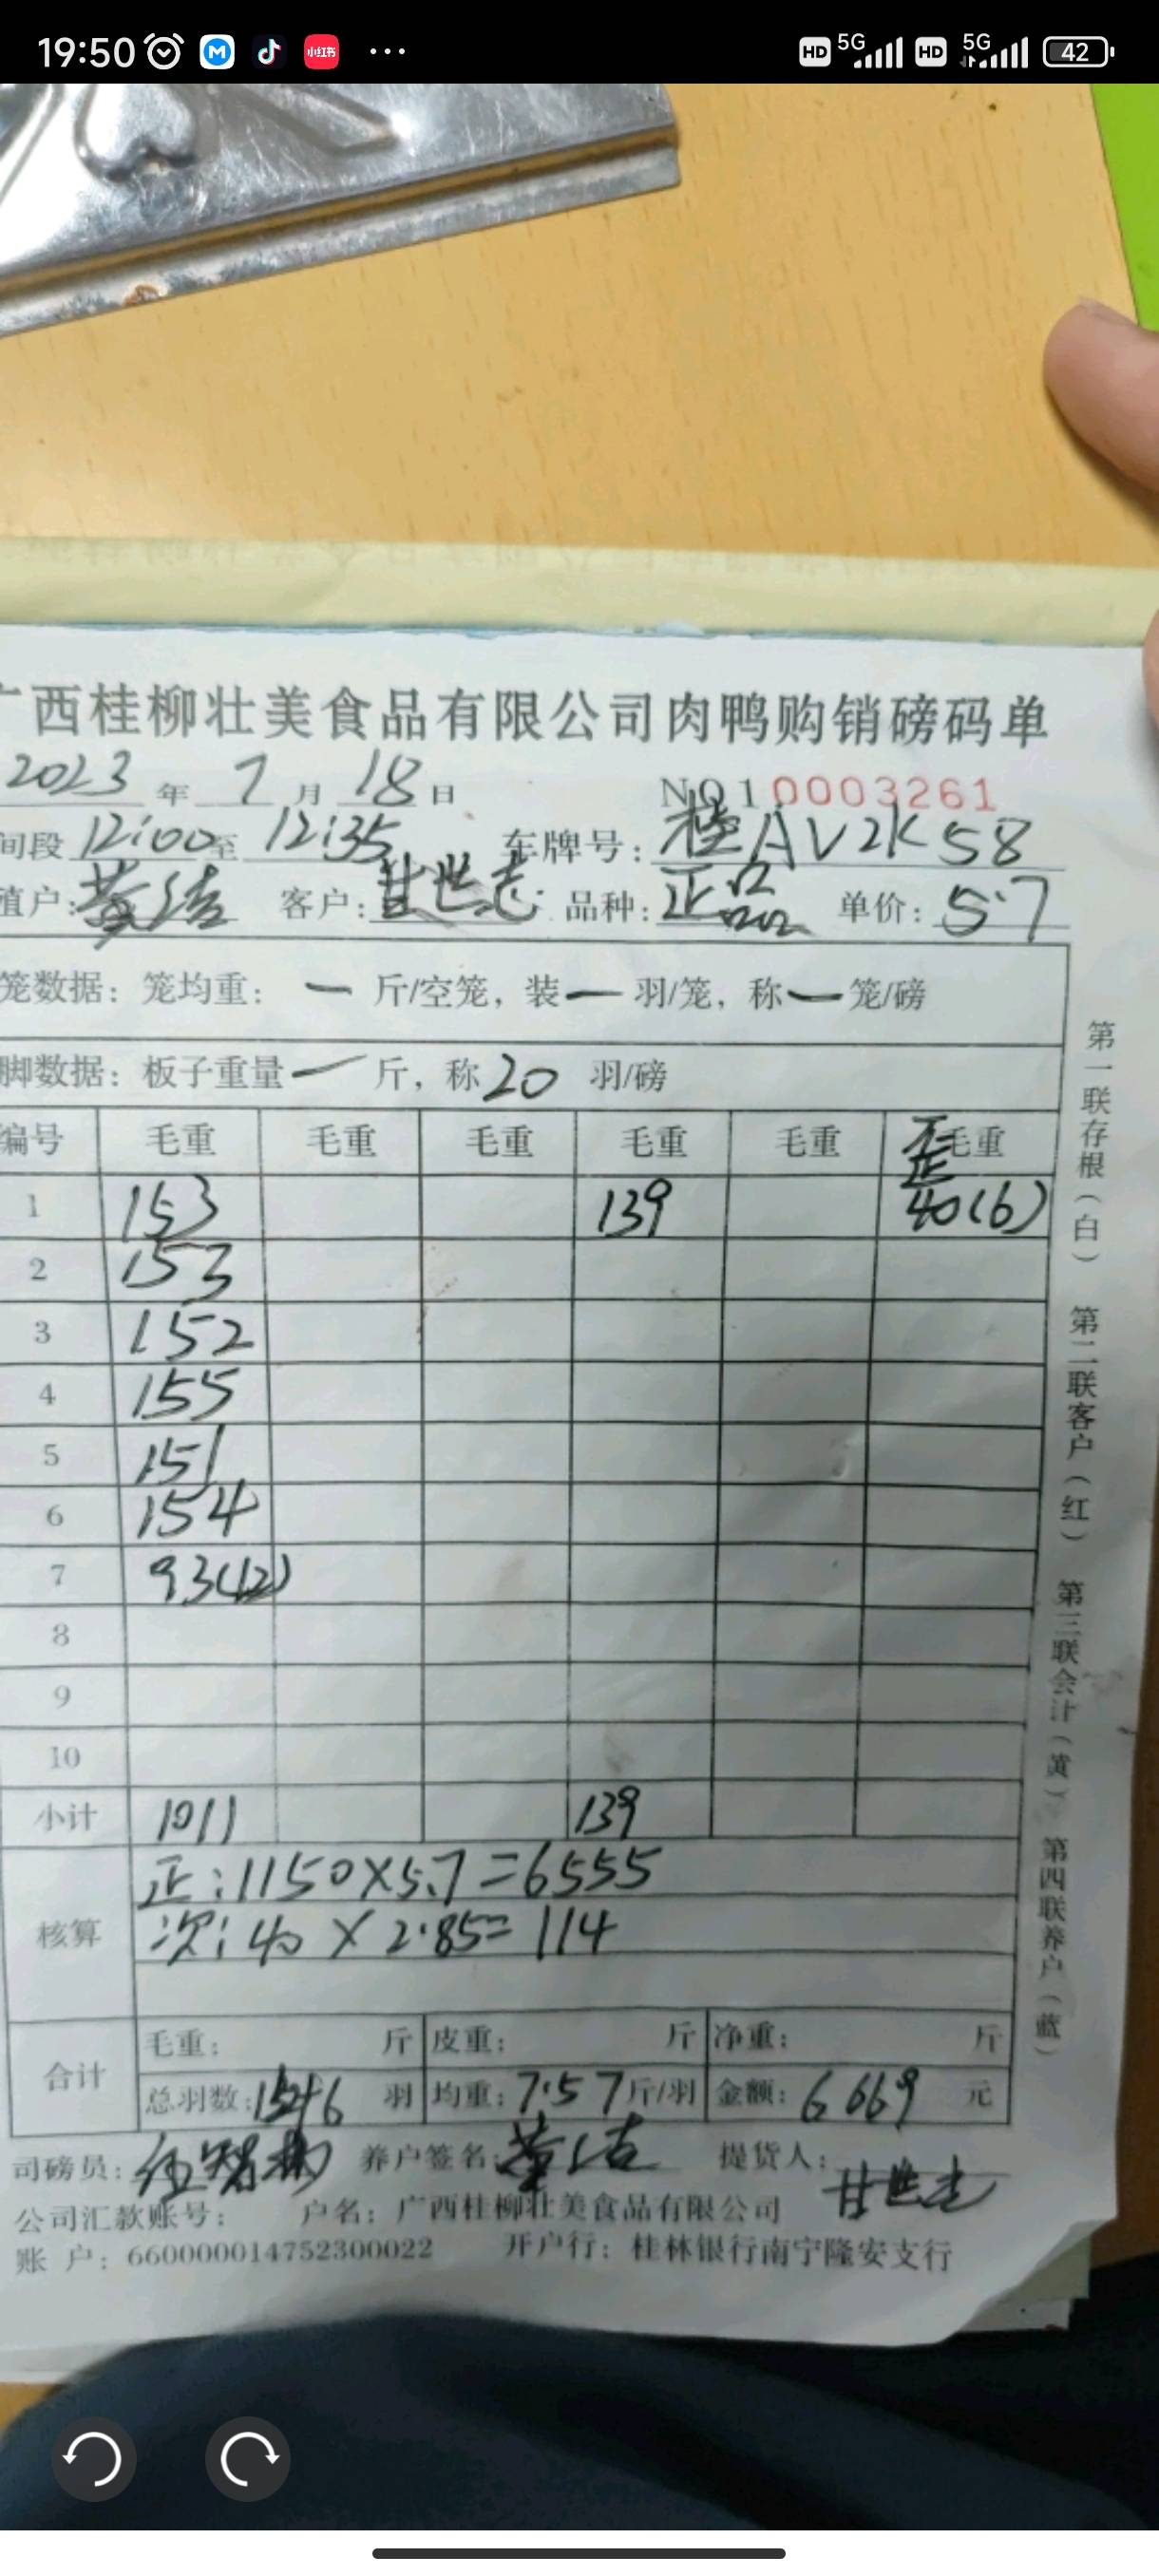 19:50 小红书 ... HD 5G HD 5G 42
广西桂柳壮美食品有限公司肉鸭购销磅码单
2023 年 7 月 18 日 NO10003261
间段 12:00 至 12:35 车牌号: 桂AV2K58
殖户: 黄洁 客户: 甘世志 品种: 正品 单价: 5.7
笼数据: 笼均重: 一 斤/空笼, 装 一 羽/笼, 称 一 笼/磅
脚数据: 板子重量 一 斤, 称 20 羽/磅
编号 毛重 毛重 毛重 毛重 毛重 歪毛重
1 153 139 40(6)
2 153
3 152
4 155
5 151
6 154
7 93(12)
8
9
10
小计 1011 139
核算 正:1150×5.7=6555
次:40×2.85=114
合计 毛重: 斤 皮重: 斤 净重: 斤
总羽数: 羽 均重: 7.57 斤/羽 金额: 6669 元
司磅员: 养户签名: 黄洁 提货人: 甘世志
公司汇款账号: 户名: 广西桂柳壮美食品有限公司
账 户: 660000014752300022 开户行: 桂林银行南宁隆安支行
第一联存根(白) 第二联客户(红) 第三联会计(黄) 第四联养户(蓝)